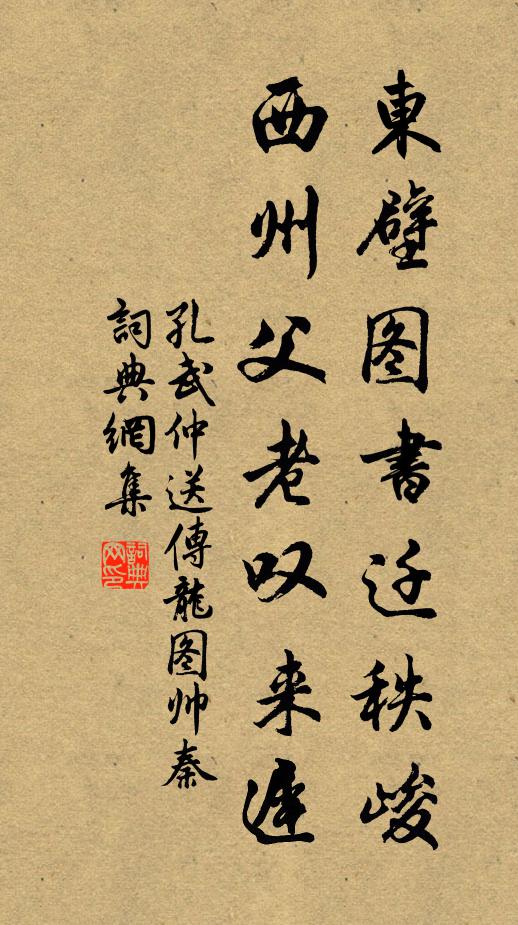 東壁图書迁秩峻
西州父老叹来遲
孔武仲送傅龍图帅秦
詞典網集
詞典网印